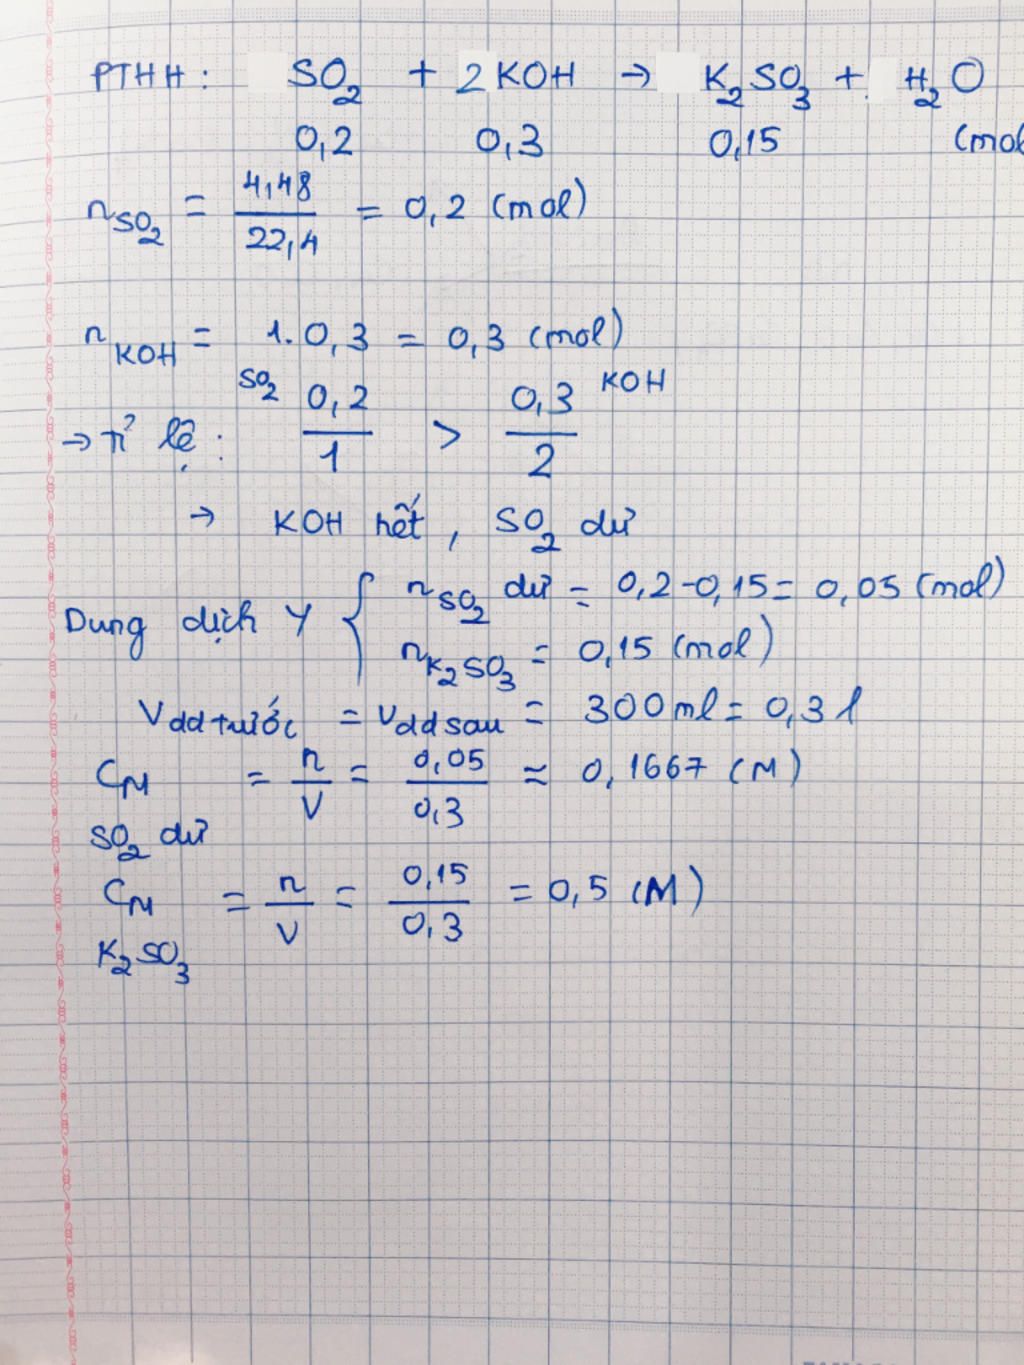 PTHH: SO₂ + 2KOH → K₂SO₃ + H₂O
0,2 0,3 0,15 (mol
n SO₂ = 4,48/22,4 = 0,2 (mol)
n KOH = 1.0,3 = 0,3 (mol)
→ Tỉ lệ: SO₂ 0,2/1 > 0,3/2 KOH
→ KOH hết, SO₂ dư
Dung dịch Y { n SO₂ dư = 0,2-0,15 = 0,05 (mol)
n K₂SO₃ = 0,15 (mol)
V dd trước = V dd sau = 300ml = 0,3 l
CM SO₂ dư = n/V = 0,05/0,3 ≈ 0,1667 (M)
CM K₂SO₃ = n/V = 0,15/0,3 = 0,5 (M)